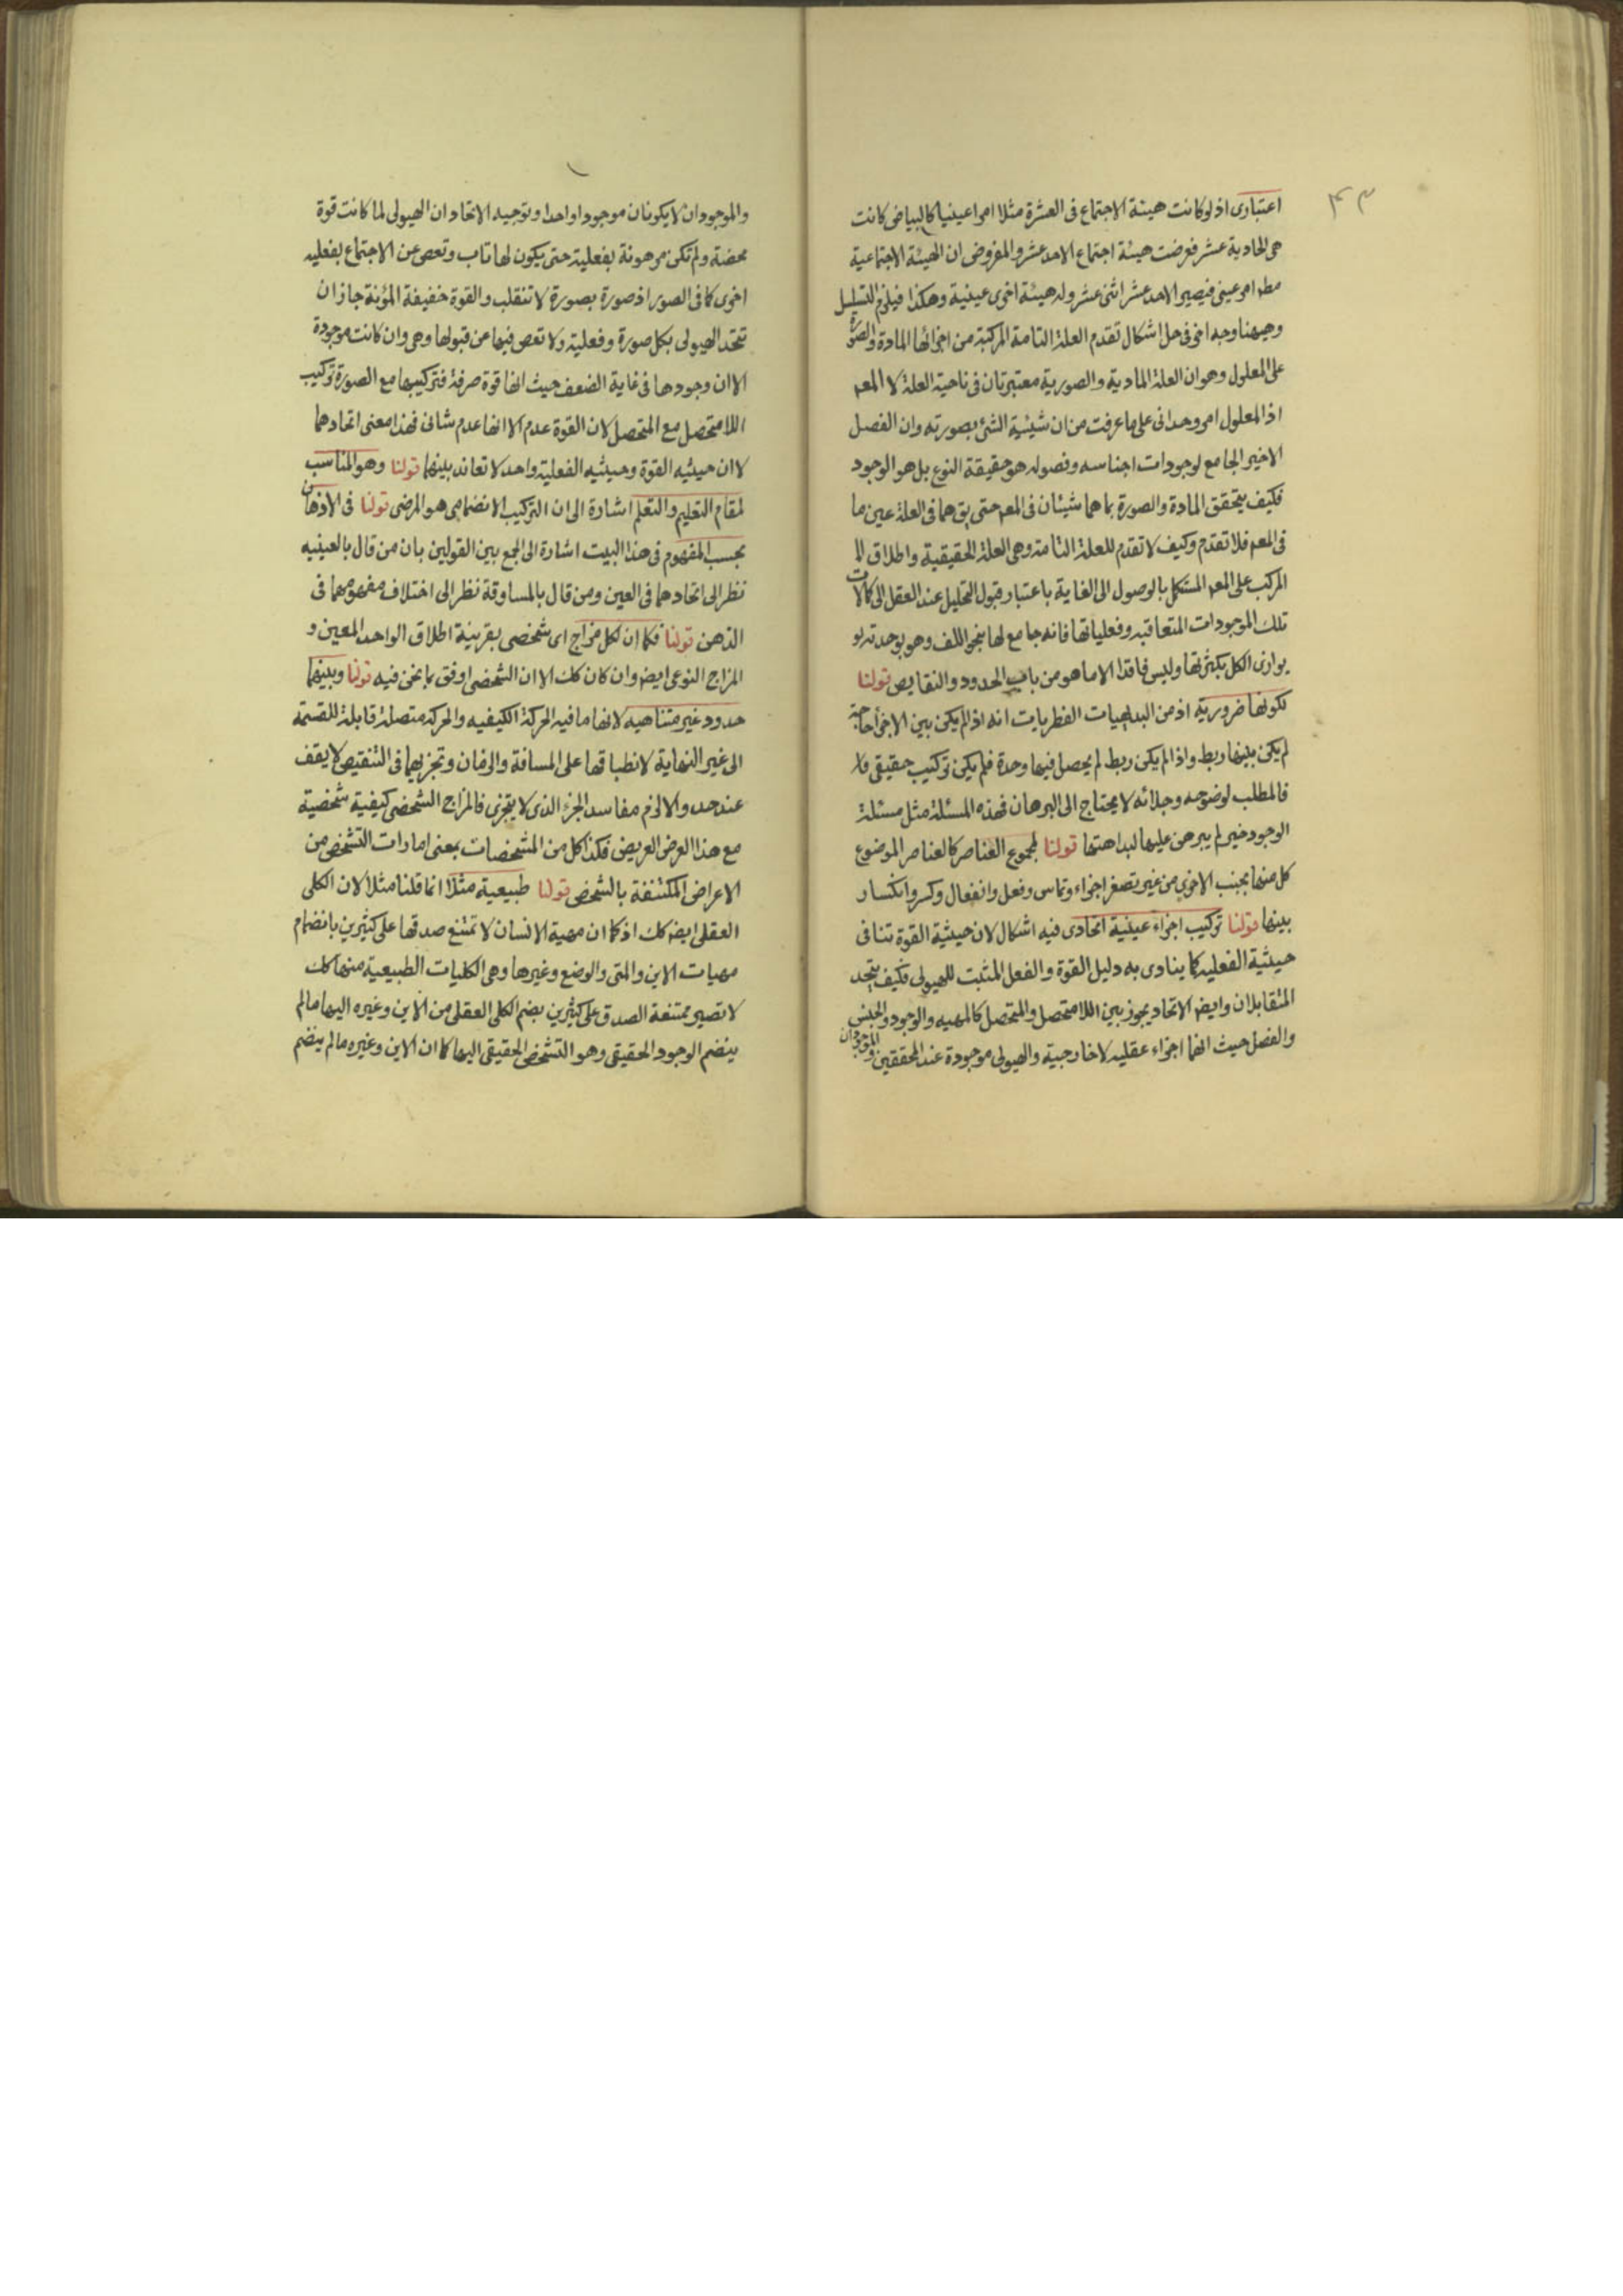 ۴۳
اعتباری اذ لو كانت هيئة الاجتماع فی العشرة مثلا امرا عينيا كالبياض كانت
هی الحادية عشر فعرضت هيئة اجتماع الاحد عشر والمفروض ان الهيئة الاجتماعية
مطه امر عينی فيصير الاحد عشر اثنی عشر وله هيئة اخری عينية وهكذا فيلزم التسلسل
وههنا وجه اخر فی حل اشكال تقدم العلة التامة المركبة من اجزائها المادة والصورة
علی المعلول وهو ان العلة المادية والصورية معتبرتان فی ناحية العلة لا المعه
اذ المعلول امر وحدانی علی ما عرفت من ان شيئية الشئ بصورته وان الفصل
الاخير الجامع لوجودات اجناسه وفصوله هو حقيقة النوع بل هو الوجود
فكيف يتحقق المادة والصورة بما هما شيئان فی المعه حتی يق هما فی العلة عين ما
فی المعه فلا تقدم وكيف لا تقدم للعلة التامة وهی العلة الحقيقية واطلاق الم
المركب علی المعه المستكمل بالوصول الی الغاية باعتبار قبول التحليل عند العقل الی كمالات
تلك الموجودات المتعاقبه وفعلياتها فانه جامع لها بنحو اللف وهو بوحدته
يوازی الكل بكثرتها وليس فاقدا الا ما هو من باب الحدود والنقايص قولنا
لكونها ضرورية اذ من البديهيات الفطريات انه اذ لم يكن بين الاجزأ حاجة
لم يكن بينها ربط واذا لم يكن ربط لم يحصل فيها وحدة فلم يكن تركيب حقيقی فلا
فالمطلب لوضوحه وجلائه لا يحتاج الی البرهان فهذه المسئلة مثل مسئلة
الوجود خير لم يبرهن عليها لبداهتها قولنا لمجموع العناصر كالعناصر الموضوع
كل منها بجنب الاخری من غير تصغر اجزاء وتماس وفعل وانفعال وكسر وانكسار
بينها قولنا تركيب اجزاء عينية اتحادی فيه اشكال لان حيثية القوة تنافی
حيثية الفعليه كما ينادی به دليل القوة والفعل المثبت للهيولی فكيف يتحد
المتقابلان وايضه الاتحاد يجوز بين اللامتحصل والمتحصل كالمهيه والوجود والجنس
والفصل حيث انهما اجزاء عقليه لا خارجية والهيولی موجودة عند المحققين والموجودان
والموجودان لا يكونان موجودا واحدا وتوجيه الاتحاد ان الهيولی لما كانت قوة
محضة ولم تكن مرهونة بفعلية حتی يكون لها تاب وتعصی عن الاجتماع بفعليه
اخری كما فی الصور اذ صورة بصورة لا تنقلب والقوة خفيفة المؤنة جاز ان
تتحد الهيولی بكل صورة وفعلية ولا تعصی فيها عن قبولها وهی وان كانت موجودة
الا ان وجودها فی غاية الضعف حيث انها قوة صرفة فتركيبها مع الصورة تركيب
اللامتحصل مع المتحصل لان القوة عدم الا انها عدم شانی فهذا معنی اتحادهما
لا ان حيثيه القوة وحيثيه الفعلية واحد لا تعاند بينهما قولنا وهو المناسب
لمقام التعليم والتعلم اشارة الی ان التركيب الانضمامی هو المرضی قولنا فی الاذهان
بحسب المفهوم فی هذا البيت اشارة الی الجمع بين القولين بان من قال بالعينيه
نظر الی اتحادهما فی العين ومن قال بالمساوقة نظر الی اختلاف مفهومهما فی
الذهن قولنا فكما ان لكل مزاج ای شخصی بقرينة اطلاق الواحد المعين و
المزاج النوعی ايضه وان كان كك الا ان الشخصی اوفق بما نحن فيه قولنا وبينهما
حدود غير متناهيه لانها ما فيه الحركة الكيفيه والحركة متصلة قابلة للقسمة
الی غير النهاية لانطباقها علی المسافة والزمان وتجزيهما فی التنقيص لا يقف
عند حد والا لزم مفاسد الجزء الذی لا يتجزی فالمزاج الشخصی كيفية شخصية
مع هذا العرض العريض فكذا كل من المشخصات بمعنی امارات التشخص من
الاعراض المكتنفة بالشخص قولنا طبيعية مثلا انما قلنا مثلا لان الكلی
العقلی ايضه كك اذ كما ان مهية الانسان لا تمتنع صدقها علی كثيرين بانضمام
مهيات الاين والمتی والوضع وغيرها وهی الكليات الطبيعية منها كك
لا تصير ممتنعة الصدق علی كثيرين بضم الكلی العقلی من الاين وغيره اليها مالم
ينضم الوجود الحقيقی وهو التشخص الحقيقی اليها كما ان الاين وغيره مالم ينضم